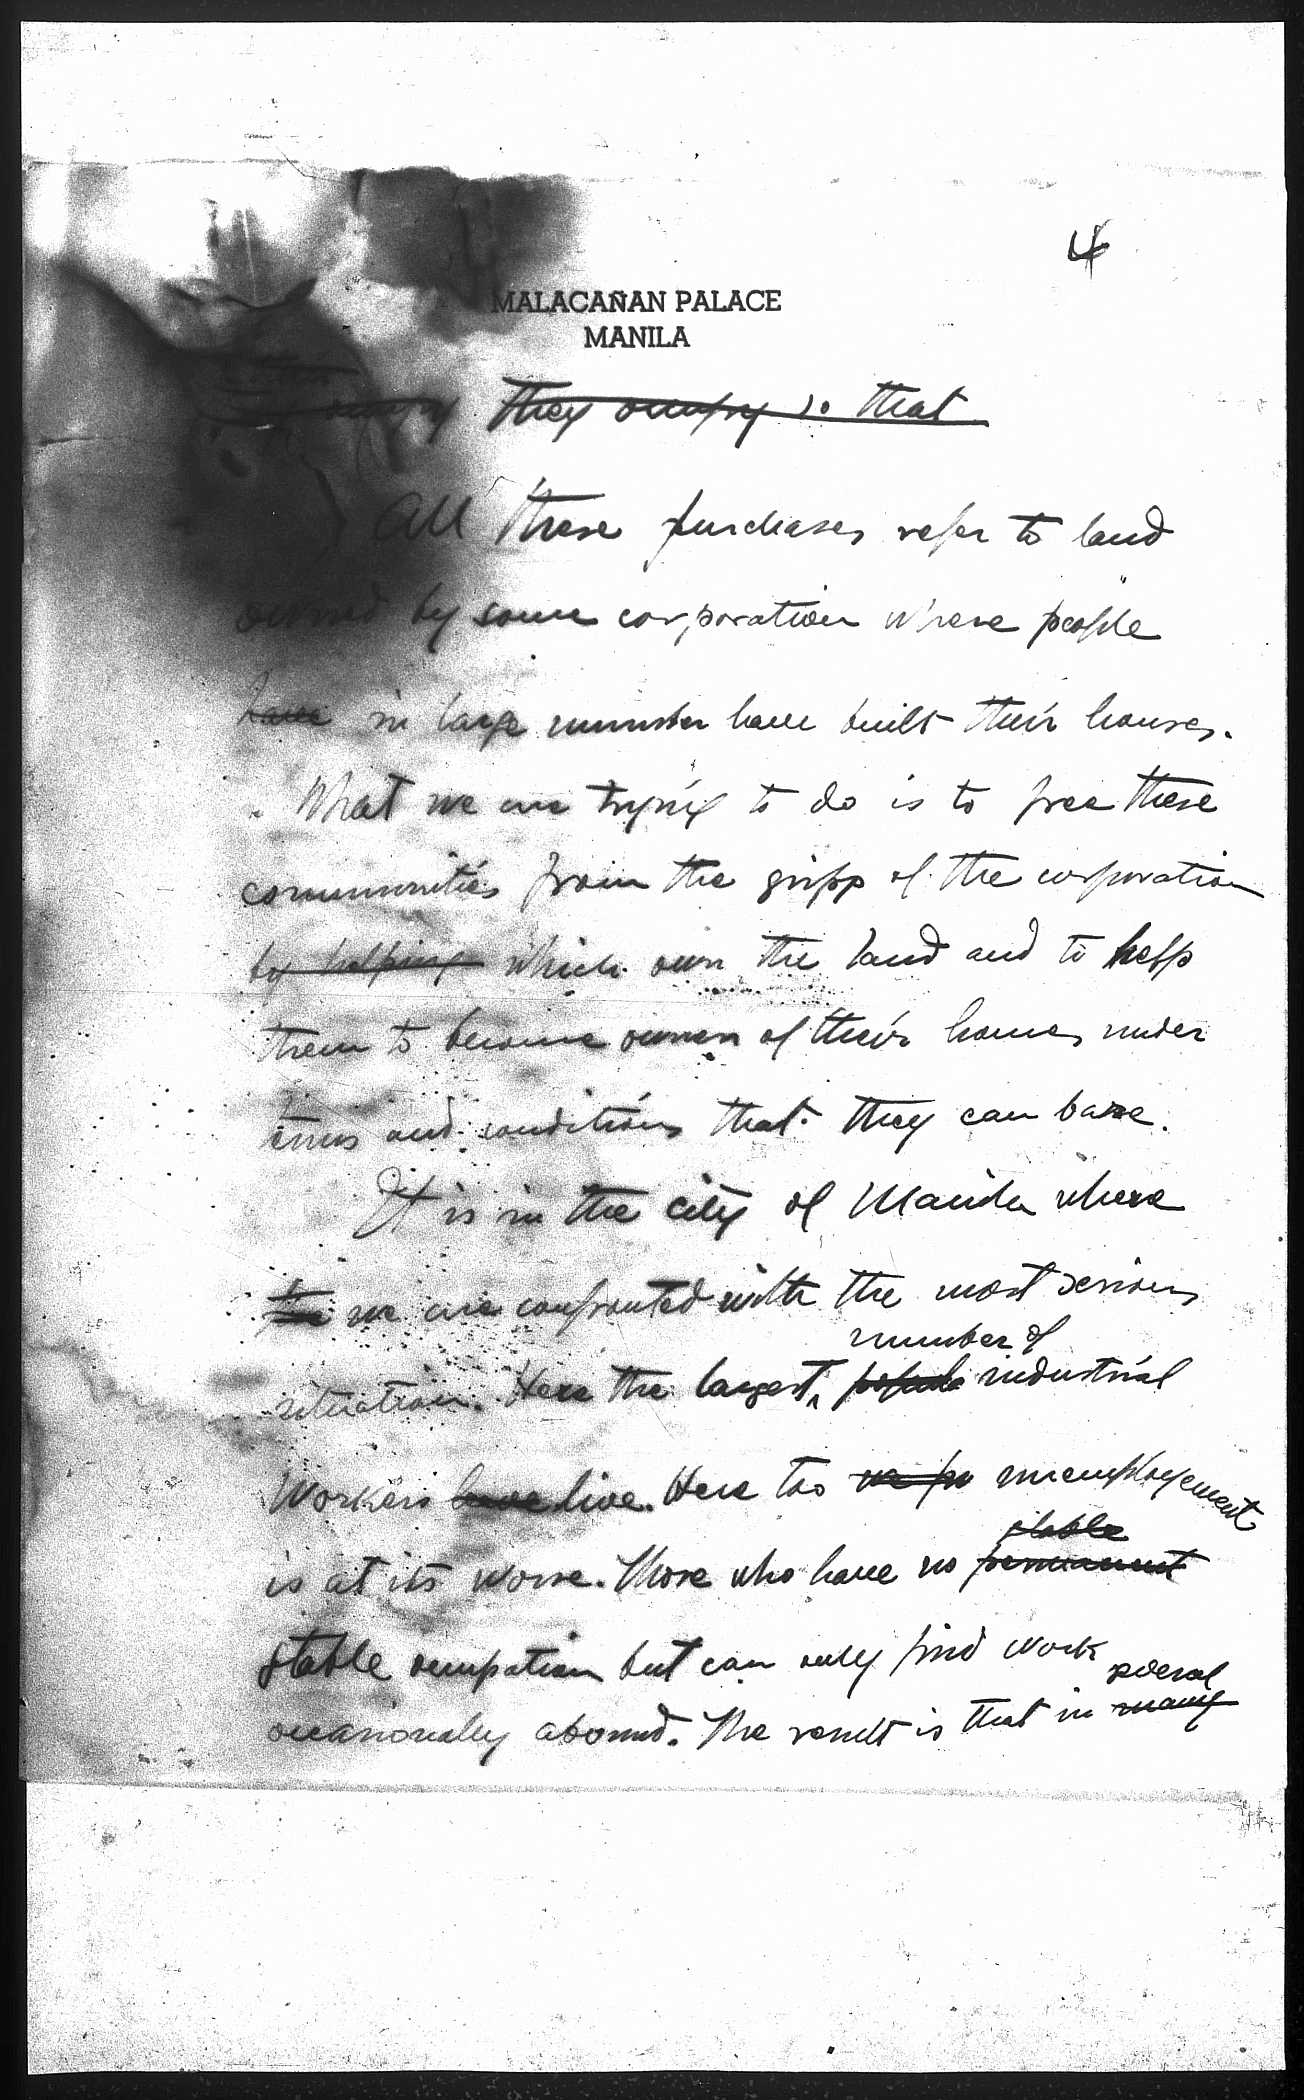 4
MALACAÑAN PALACE
MANILA
they occupy so that
All these purchases refer to land
owned by some corporation where people
have in large number have built their houses.
What we are trying to do is to free these
communities from the gripp of the corporation
by helping which own the land and to help
them to become owners of their homes under
terms and conditions that they can bare.
It is in the city of Manila where
we are confronted with the most serious
number of
situation. Here the largest popula industrial
Workers have live. Here too we unemployement
stable
is at its worse. Those who have no permanent
stable occupation but can only find work
several
occasionally abound. The result is that in many